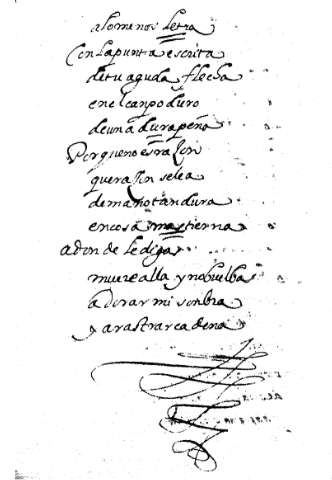 alomenos letra
Con la punta escrita
de tu aguda flecha
en el canpo duro
de una dura peña
Porque no es raçon
quera çin se lea
de mano tan dura
en cosa mas tierna
adonde le diga
muere alla y no buelba
adorar mi sonbra
y arastrar cadena